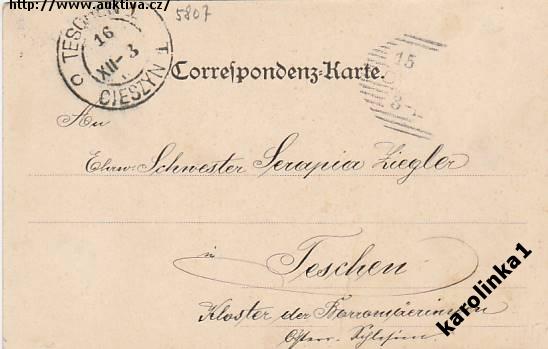 http://www.auktiva.cz/
5807
TESCHEN
16
XII-3
CIESZYN
Correspondenz-Karte.
15
8
An
Ehrw. Schwester Serapia Ziegler
in Teschen
Kloster der Borromäerinnen
Österr. Schlesien
karolinka1